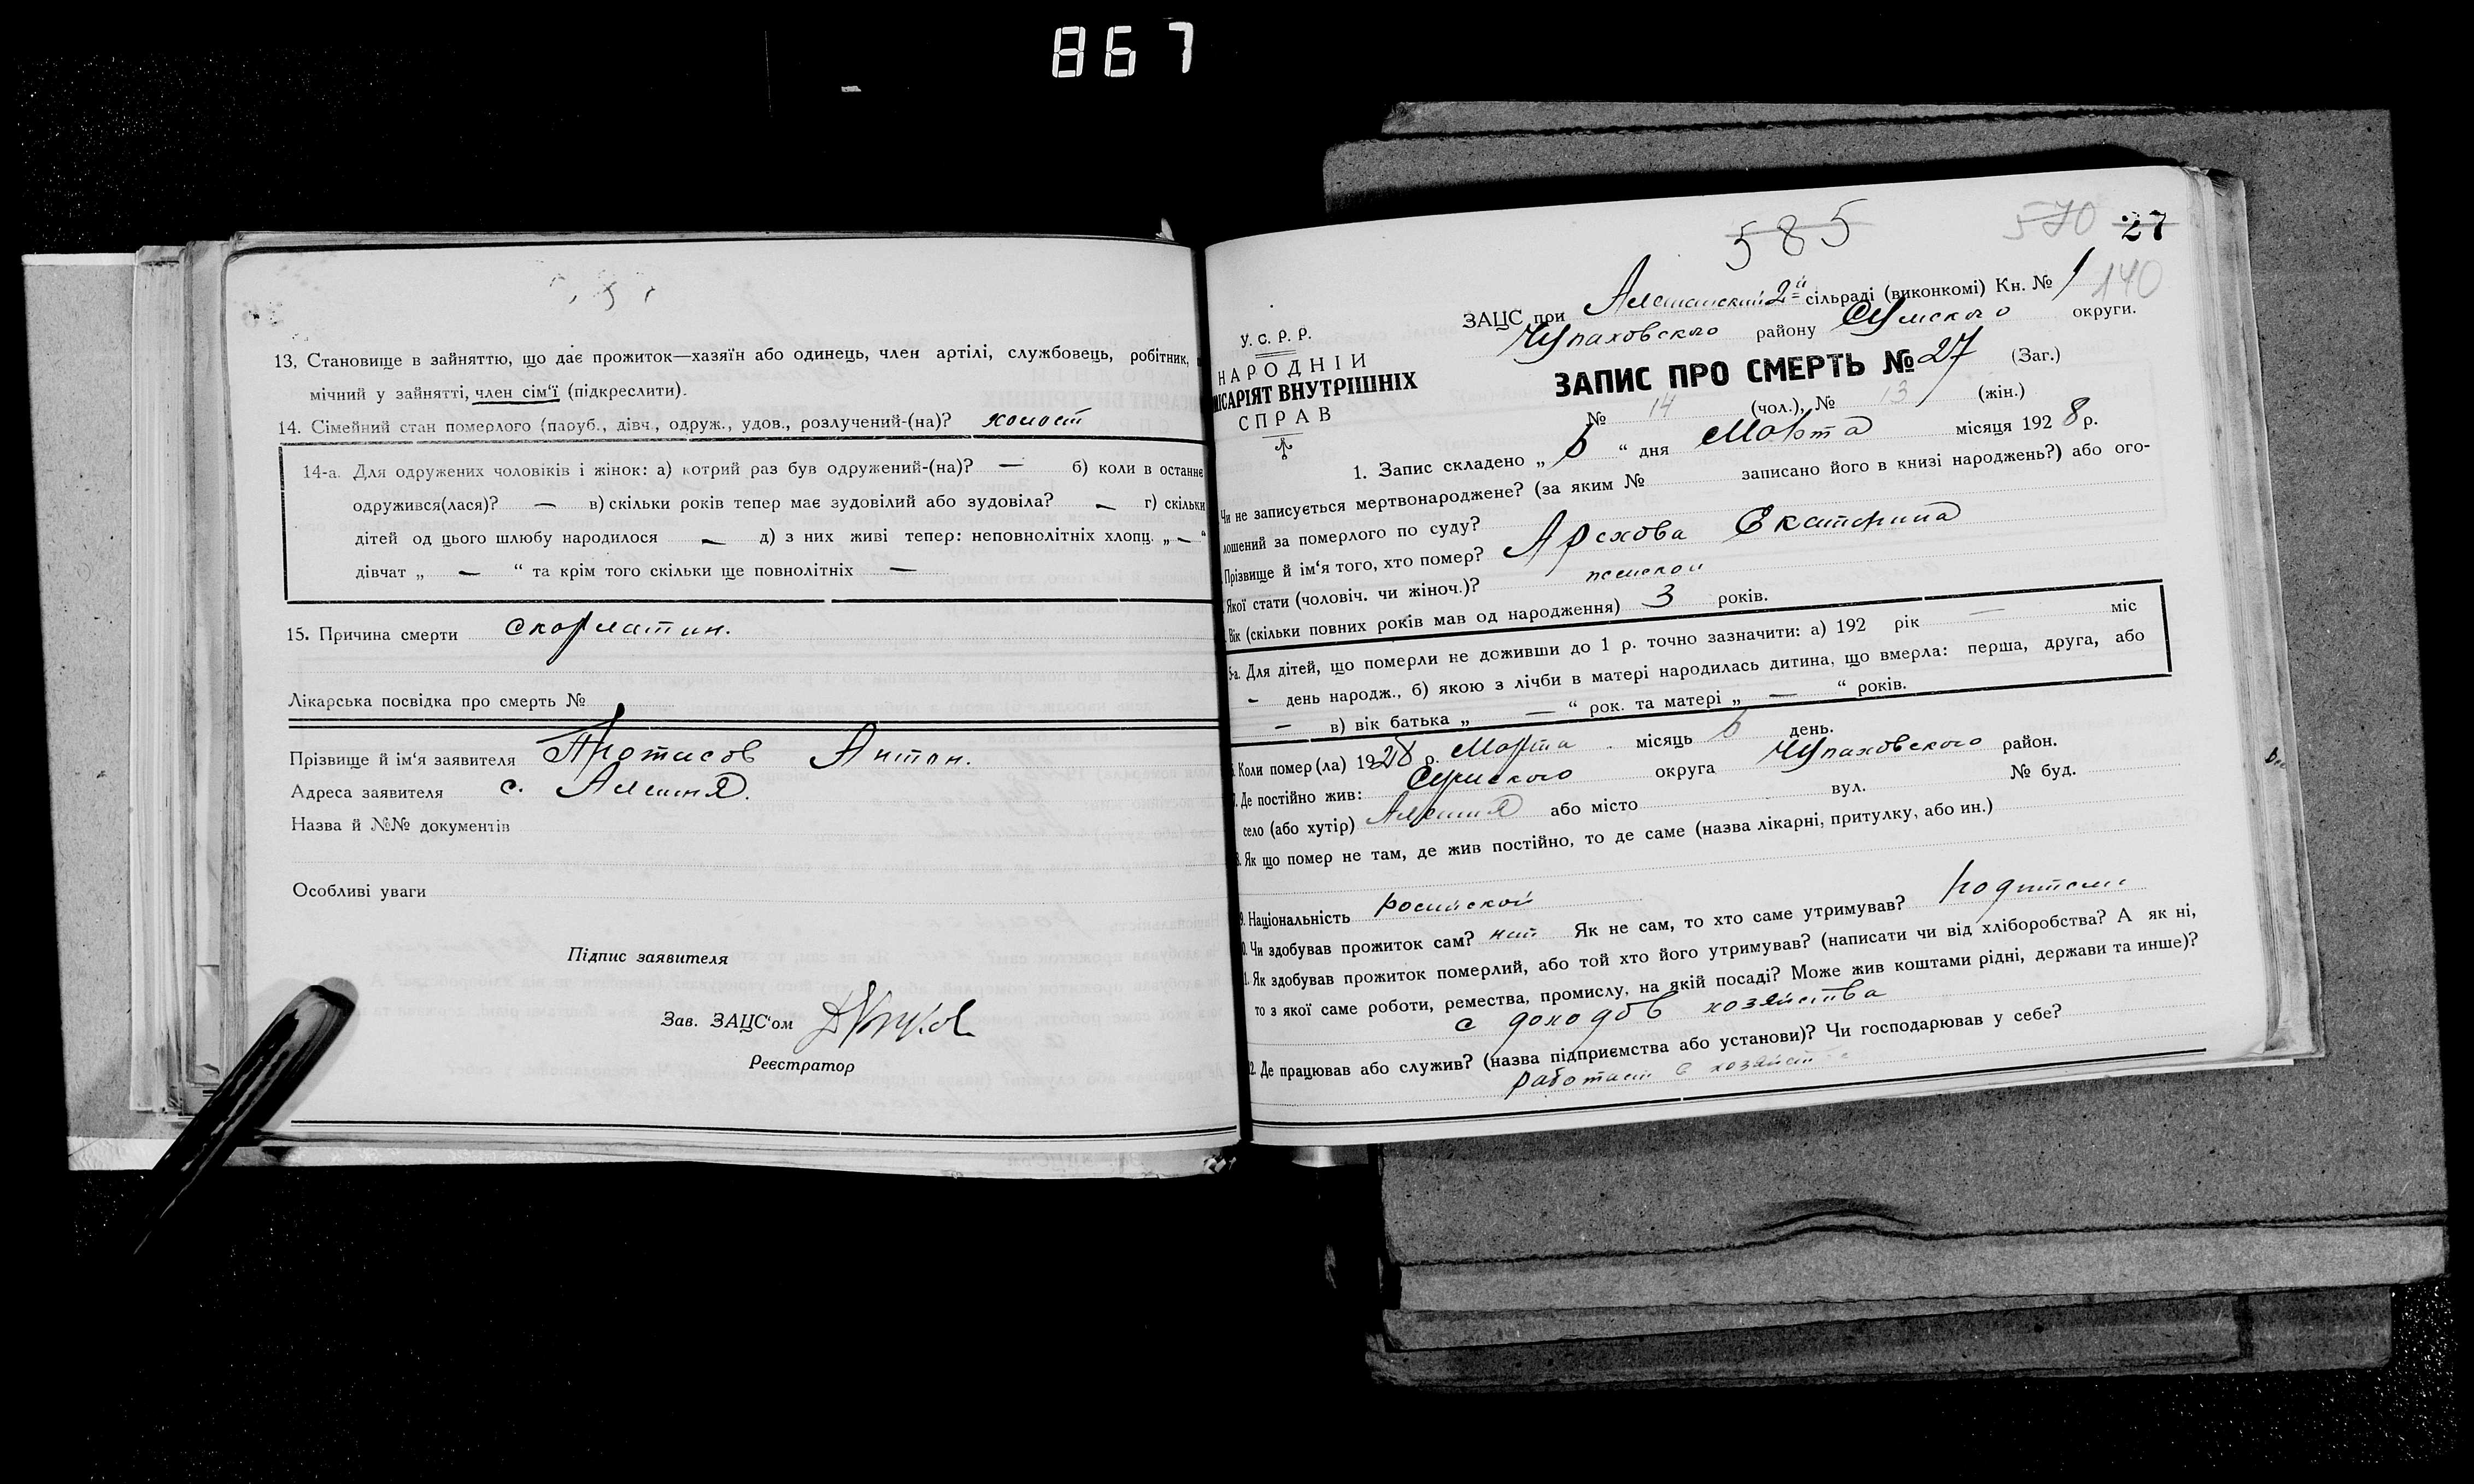 867
13, Становище в зайняттю, що дає прожиток—хазяїн або одинець, член артілі, службовець, робітник,
мічний у зайнятті, член сім'ї (підкреслити).
14. Сімейний стан померлого (паруб., дівч., одруж., удов., розлучений-(на)? холост
14-а. Для одружених чоловіків і жінок: а) котрий раз був одружений-(на)? — б) коли в останнє
одружився(лася)? — в) скільки років тепер має зудовілий або зудовіла? — г) скільки
дітей од цього шлюбу народилося — д) з них живі тепер: неповнолітніх хлопц. „ — “
дівчат „ — “ та крім того скільки ще повнолітніх —
15. Причина смерти скорлатин.
Лікарська посвідка про смерть №
Прізвище й ім'я заявителя Протасов Антон.
Адреса заявителя с. Алешня.
Назва й №№ документів
Особливі уваги
Підпис заявителя
Зав. ЗАЦС'ом
Реєстратор
585
570 27
140
У. С. Р. Р.
НАРОДНІЙ
ІСАРІЯТ ВНУТРІШНІХ
СПРАВ
ЗАЦС при Алешанский 2й сільраді (виконкомі) Кн. № 1
Чупаховского району Сумского округи.
ЗАПИС ПРО СМЕРТЬ № 27 (Заг.)
№ 14 (чол.), № 13 (жін.)
1. Запис складено „ 6 “ дня Марта місяця 1928 р.
Чи не записується мертвонароджене? (за яким № записано його в книзі народжень?) або ого-
лошений за померлого по суду?
Прізвище й ім'я того, хто помер? Арехова Екатерина
Якої стати (чоловіч. чи жіноч.)? женской
Вік (скільки повних років мав од народження) 3 років.
5-а. Для дітей, що померли не доживши до 1 р. точно зазначити: а) 192 рік — міс
— день народж., б) якою з лічби в матері народилась дитина, що вмерла: перша, друга, або
— в) вік батька „ — “ рок. та матері „ — “ років.
Коли помер(ла) 1928 р. Марта місяць 6 день.
Де постійно жив: Сумского округа Чупаховского район.
село (або хутір) Алешня або місто вул. № буд.
8. Як що помер не там, де жив постійно, то де саме (назва лікарні, притулку, або ин.)
9. Національність росийской
0. Чи здобував прожиток сам? нет Як не сам, то хто саме утримував? родители
1. Як здобував прожиток померлий, або той хто його утримував? (написати чи від хліборобства? А як ні,
то з якої саме роботи, ремества, промислу, на якій посаді? Може жив коштами рідні, держави та инше)?
с доходов хозяйства
2. Де працював або служив? (назва підприємства або установи)? Чи господарював у себе?
работает в хозяйстве